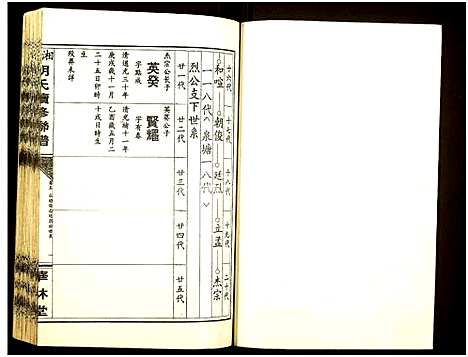 十六代 十七代 十八代 十九代 二十代
和喧——朝俊——廷烈——立孟——杰宗
一一八代︿泉塘一八代﹀
烈公支下世系
廿一代 廿二代 廿三代 廿四代 廿五代
杰宗公长子
英癸
字點成
清道光三十年
庚戌歲十一月
二十五日卯時
生
殁葬未詳
英癸公子
賢耀
字有春
清光緒十一年
乙酉歲五月二
十戌日時生
湘胡氏續修聯譜